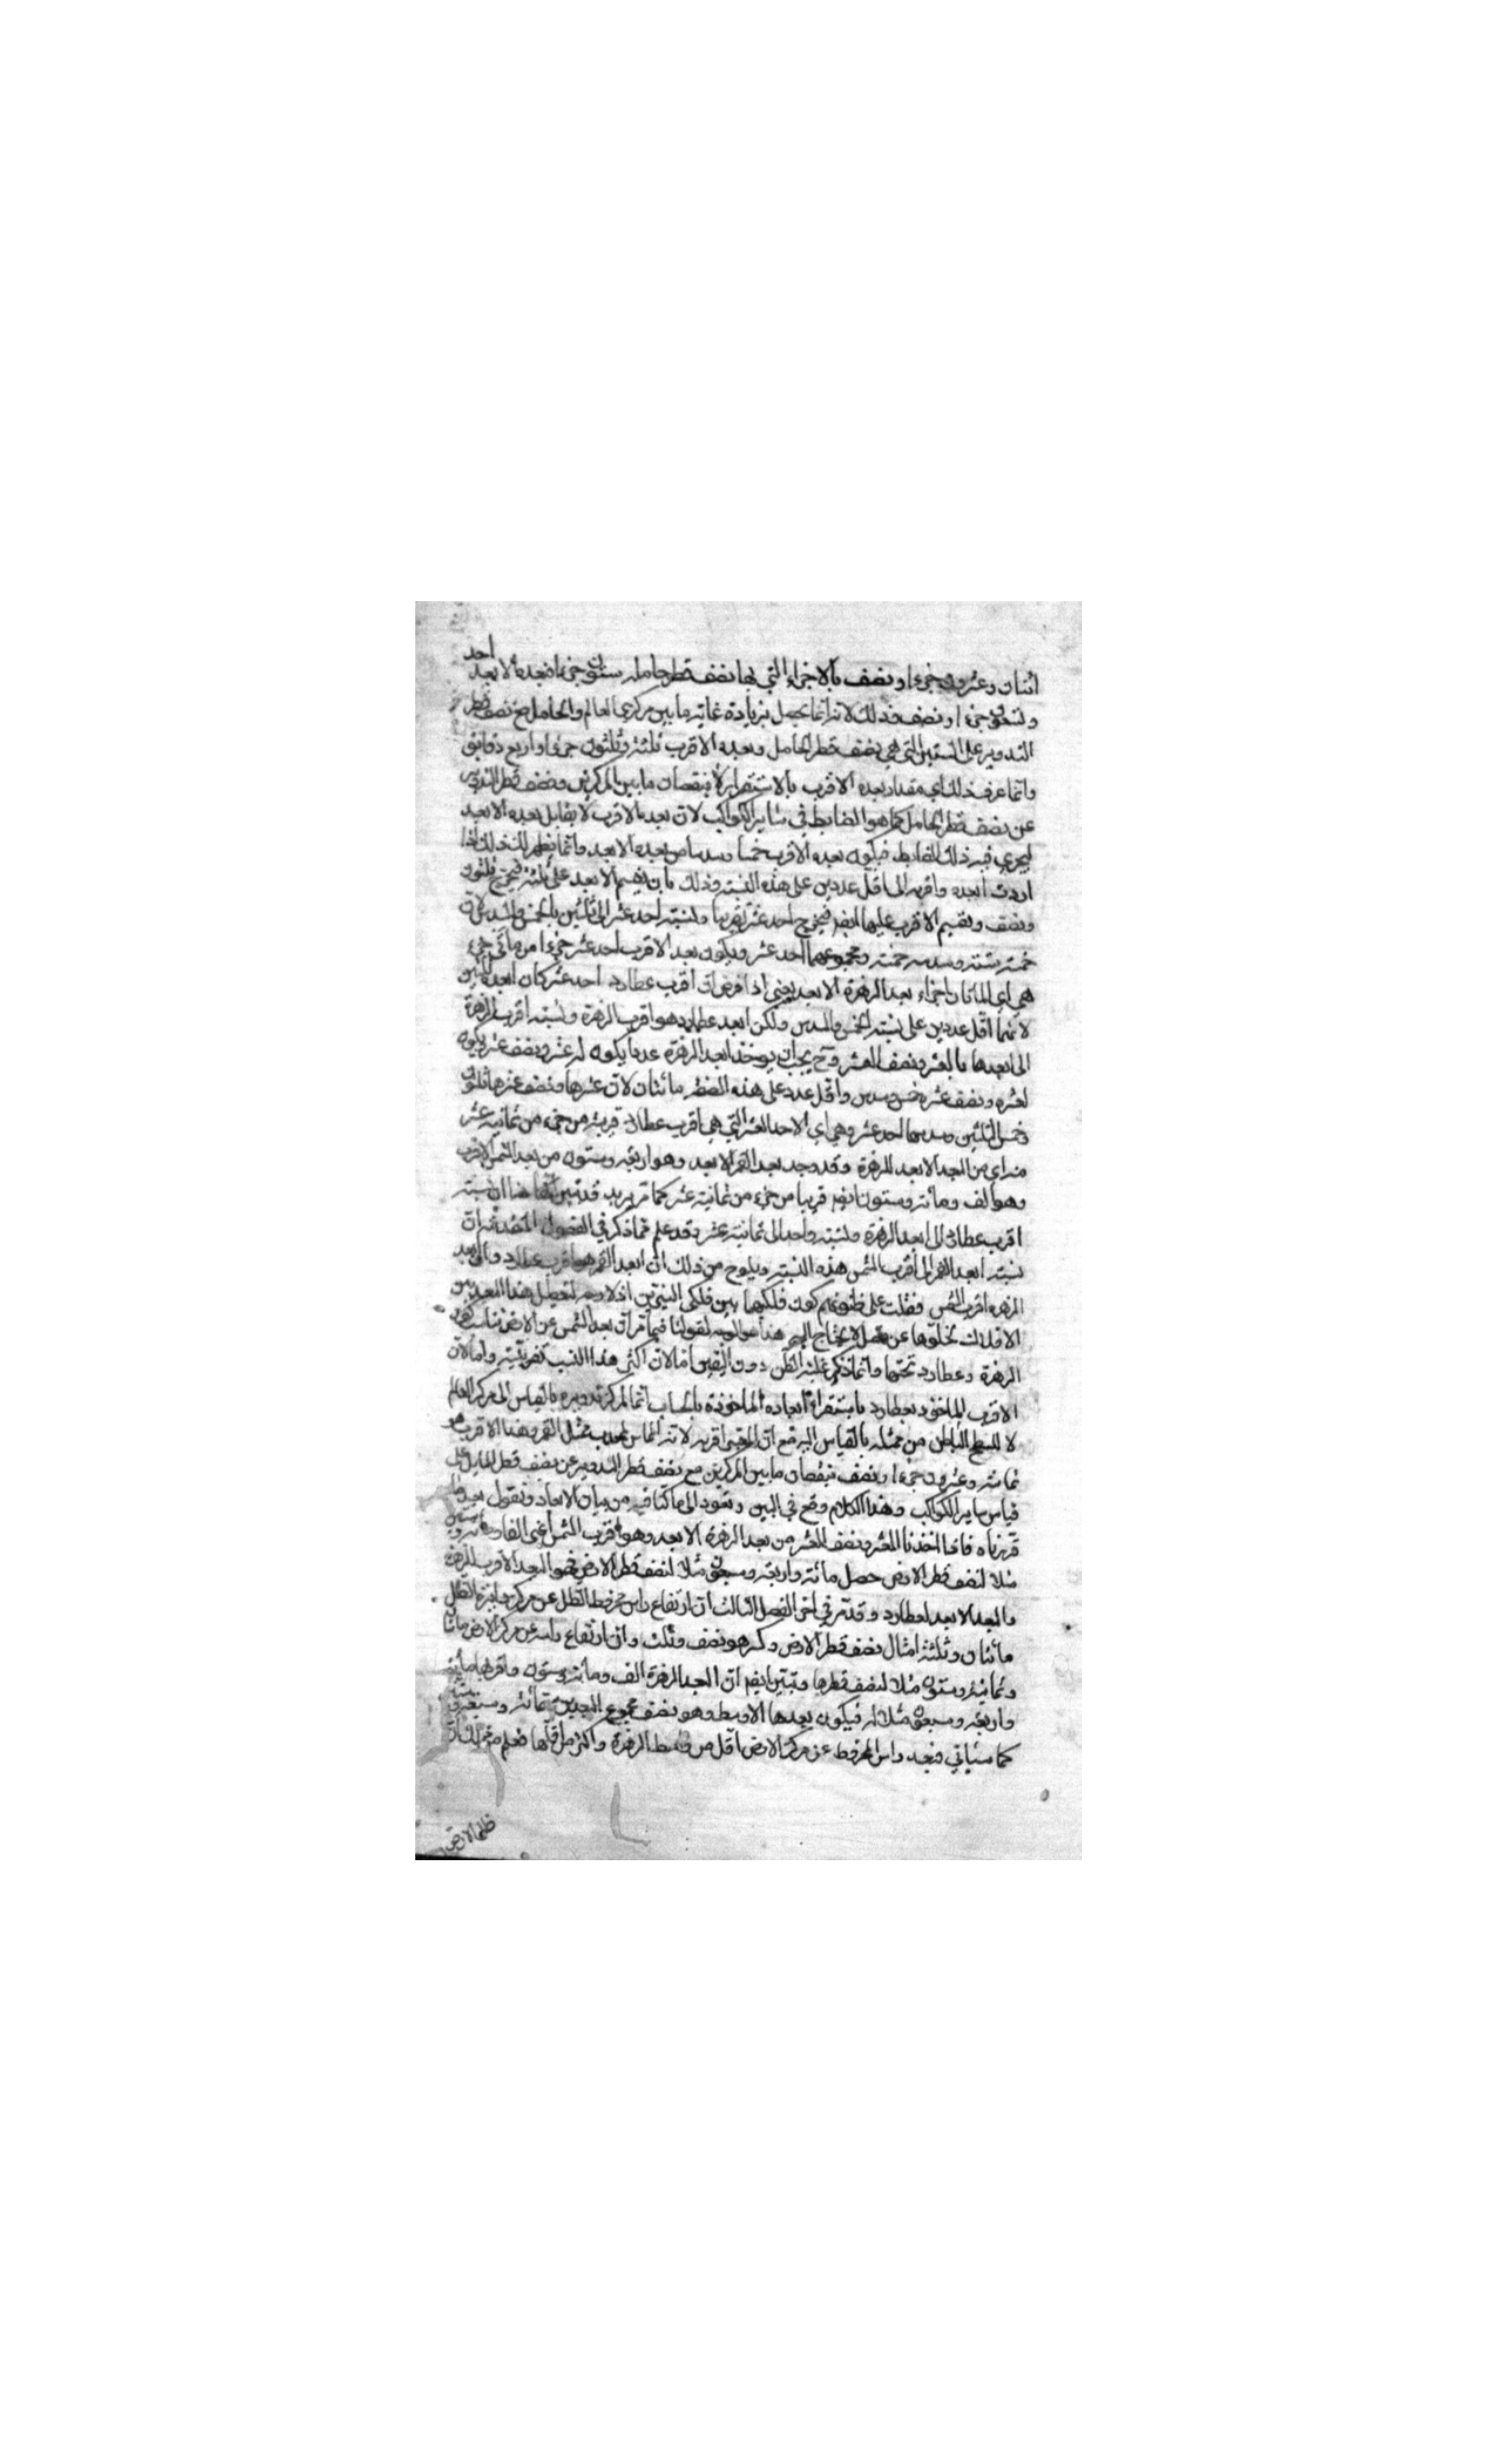 اثنان وعشرون جزءا ونصف بالاجزاء التي بها نصف قطر حامله ستون جزءا فبعده الابعد احد
وتسعون جزءا ونصف فذلك لانه انما يحصل بزيادة غاية ما بين مركزي العالم والحامل مع نصف قطر
التدوير على الستين التي هي نصف قطر الحامل وبعده الاقرب ثلثة وثلثون جزءا واربع دقايق
وانما عرف ذلك اي مقدار بعده الاقرب بالاستقراء لا بنقصان ما بين المركزين ونصف قطر التدوير
عن نصف قطر الحامل كما هو الضابط في ساير الكواكب لان بعده الاقرب لا يقابل بعده الابعد
ليجري فيه ذلك الضابط فيكون بعده الاقرب خمسا وسدسا من بعده الابعد وانما يظهر لك ذلك اذا
اردت ابعده واقربه الى اقل عددين على هذه النسبة وذلك بان يقسم الابعد على ثلثة فيخرج ثلثون
ونصف ونقسم الاقرب عليها ايضا فيخرج احد عشر تقريبا ونسبة احد عشر الى ثلثين بالخمس والسدس لان
خمسه ستة وسدسه خمسة ومجموعهما احد عشر ويكون بعد الاقرب احد عشر جزءا من مائتي جزء
هي اي المائتان اجزاء بعد الزهرة الابعد يعني اذا فرض ان اقرب عطارد احد عشر كان ابعده ثلثين
لانهما اقل عددين على نسبة الخمس والسدس ولكن ابعد عطارد هو اقرب الزهرة ونسبة اقرب الزهرة
الى ابعدها بالعشر ونصف العشر وح يجب ان يوخذ ابعد الزهرة عددا يكون له عشر ونصف عشر يكون
لعشره ونصف عشره خمس وسدس واقل عدد على هذه الصفة مائتان لان عشرها ونصف عشرها ثلثون
وخمس الثلثين وسدسها احد عشر وهي اي الاحد العشر التي هي اقرب عطارد قريبة من جزء من ثمانية عشر
منه اي من البعد الابعد للزهرة وقد وجد بعد القمر الابعد وهو اربعة وستون من بعد الشمس الاقرب
وهو الف ومائة وستون ايضا قريبا من جزء من ثمانية عشر كما مر يريد قد تبين ان نسبة
اقرب عطارد الى ابعد الزهرة ونسبة واحد الى ثمانية عشر وقد علم مما ذكر في الفصول المتقدمة ان
نسبة ابعد القمر الى اقرب الشمس هذه النسبة ويلوح من ذلك ان ابعد القمر هو اقرب عطارد وابعد
الزهرة اقرب الشمس فغلب على ظنونهم كون فلكيهما بين فلكي النيرين
الافلاك تخلوها عن فضل لا يحتاج اليه لقولنا فيما مر ان بعد الشمس عن الارض يناسب كون
الزهرة وعطارد تحتها وانما ذكر غلبة الظن دون اليقين اما لان اكثر هذا النسب تقريبية واما لان
الاقرب الماخوذ بعطارد باستقراء ابعاده الماخوذة بالحساب انما لمركز تدويره بالقياس الى مركز العالم
لا للسطح الباطن من ممثله بالقياس اليه مع ان اقربه لانه المماس لمحدب ممثل القمر وهذا الاقرب هو
ثمانية وعشرون جزءا ونصف بنقصان ما بين المركزين مع نصف قطر التدوير عن نصف قطر الحامل على
قياس ساير الكواكب وهذا الكلام وقع في البين ونعود الى ما كنا فيه من بيان الابعاد ونقول بعد ما
قررناه فاذا اخذنا العشر ونصف العشر من بعد الزهرة الابعد وهو اقرب الشمس اعني الفا ومائة وستين
مثلا لنصف قطر الارض حصل مائة واربعة وسبعون مثلا لنصف قطر الارض فهو البعد الاقرب للزهرة
والبعد الابعد لعطارد وقد مر في اخر الفصل الثالث ان ارتفاع راس مخروط الظل عن مركز دايرة الظل
مائتان وثلثة امثال نصف قطر الارض وكسر هو نصف وثلث وان ارتفاع راسه عن مركز الارض مائتان
وثمانية وستون مثلا لنصف قطرها وتبين ايضا ان ابعد الزهرة الف ومائة وستون واقربها مائة
واربعة وسبعون مثلا له فيكون بعدها الاوسط وهو نصف مجموع البعدين ستمائة وسبعة وستين
كما سياتي فبعد راس المخروط عن مركز الارض اقل من اوسط الزهرة واكثر من اقلها فعلم من ذلك ان
ظل الارض